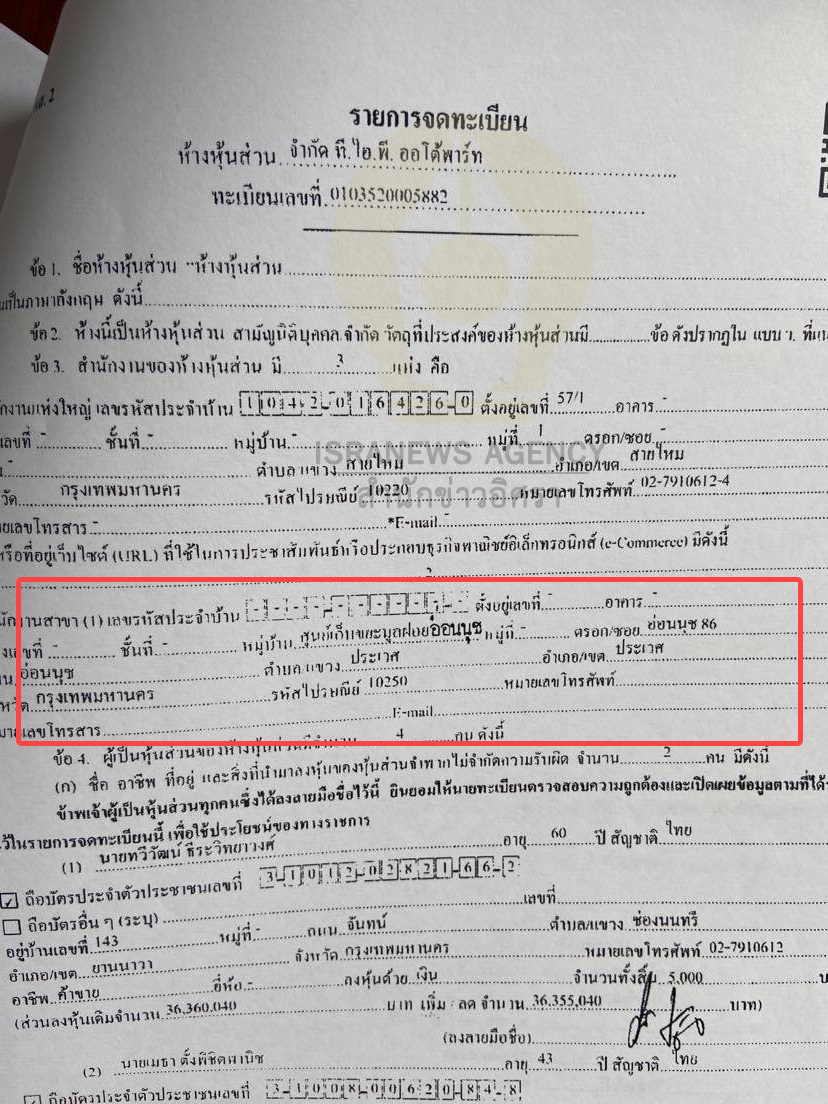 รายการจดทะเบียน
ห้างหุ้นส่วน จำกัด ที.ไอ.พี. ออโต้พาร์ท
ทะเบียนเลขที่ 0103520005882
ข้อ 1. ชื่อห้างหุ้นส่วน "ห้างหุ้นส่วน
นเป็นภาษาอังกฤษ ดังนี้
ข้อ 2. ห้างนี้เป็นห้างหุ้นส่วน สามัญนิติบุคคล/จำกัด วัตถุที่ประสงค์ของห้างหุ้นส่วนมี ข้อ ดังปรากฏใน แบบ ว. ที่แน
ข้อ 3. สำนักงานของห้างหุ้นส่วน มี 3 แห่ง คือ
ักงานแห่งใหญ่ เลขรหัสประจำบ้าน 1042-016426-0 ตั้งอยู่เลขที่ 57/1 อาคาร -
งเลขที่ - ชั้นที่ - หมู่บ้าน - หมู่ที่ 1 ตรอก/ซอย -
ISRANEWS AGENCY
ตำบล/แขวง สายไหม อำเภอ/เขต สายไหม
วัด กรุงเทพมหานคร รหัสไปรษณีย์ 10220 หมายเลขโทรศัพท์ 02-7910612-4
สำนักข่าวอิศรา
ายเลขโทรสาร - *E-mail -
หรือที่อยู่เว็บไซต์ (URL) ที่ใช้ในการประชาสัมพันธ์หรือประกอบธุรกิจพาณิชย์อิเล็กทรอนิกส์ (e-Commerce) มีดังนี้
นักงานสาขา (1) เลขรหัสประจำบ้าน - ตั้งอยู่เลขที่ - อาคาร -
งเลขที่ - ชั้นที่ - หมู่บ้าน ศูนย์เก็บขยะมูลฝอยอ่อนนุช หมู่ที่ - ตรอก/ซอย อ่อนนุช 86
นน อ่อนนุช ตำบล/แขวง ประเวศ อำเภอ/เขต ประเวศ
หวัด กรุงเทพมหานคร รหัสไปรษณีย์ 10250 หมายเลขโทรศัพท์
มายเลขโทรสาร E-mail
ข้อ 4. ผู้เป็นหุ้นส่วนของห้างหุ้นส่วนมีจำนวน 4 คน ดังนี้
(ก) ชื่อ อาชีพ ที่อยู่ และสิ่งที่นำมาลงหุ้นของหุ้นส่วนจำพวกไม่จำกัดความรับผิด จำนวน 2 คน มีดังนี้
ข้าพเจ้าผู้เป็นหุ้นส่วนทุกคนซึ่งได้ลงลายมือชื่อไว้นี้ ยินยอมให้นายทะเบียนตรวจสอบความถูกต้องและเปิดเผยข้อมูลตามที่ได้ร
ไว้ในรายการจดทะเบียนนี้ เพื่อใช้ประโยชน์ของทางราชการ
(1) นายทวีวัฒน์ ธีระวิทยาวงศ์ อายุ 60 ปี สัญชาติ ไทย
ถือบัตรประจำตัวประชาชนเลขที่ 3-1012-02821-66-2
ถือบัตรอื่น ๆ (ระบุ) เลขที่
อยู่บ้านเลขที่ 143 หมู่ที่ - ถนน จันทน์ ตำบล/แขวง ช่องนนทรี
อำเภอ/เขต ยานนาวา จังหวัด กรุงเทพมหานคร หมายเลขโทรศัพท์ 02-7910612
อาชีพ ค้าขาย ยี่ห้อ - ลงหุ้นด้วย เงิน จำนวนทั้งสิ้น 5,000 บ
(ส่วนลงหุ้นเดิมจำนวน 36,360,040 บาท เพิ่ม / ลด จำนวน 36,355,040 บาท)
(ลงลายมือชื่อ)
(2) นายเมธา ตั้งพิชิตพานิช อายุ 43 ปี สัญชาติ ไทย
ถือบัตรประจำตัวประชาชนเลขที่ 3-1008-00620-84-8